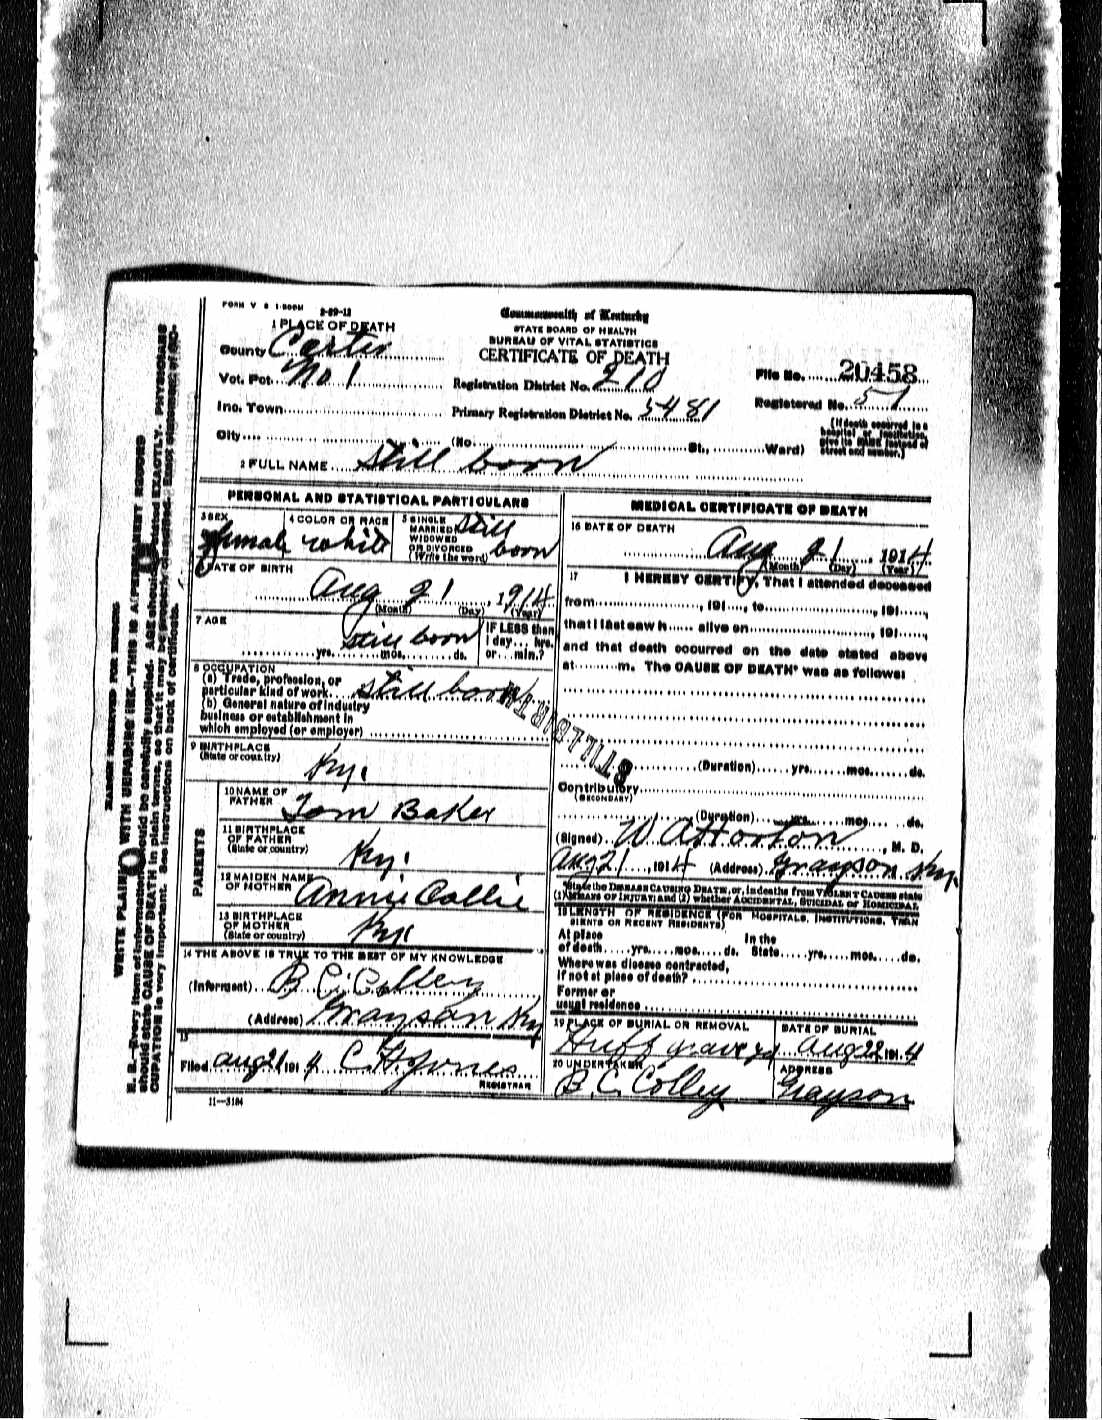 FORM V S 1-500M 2-29-12
Commonwealth of Kentucky
STATE BOARD OF HEALTH
BUREAU OF VITAL STATISTICS
CERTIFICATE OF DEATH
1 PLACE OF DEATH
County Carter
Vot. Pct. No 1
Registration District No. 210
File No. 20458
Inc. Town
Primary Registration District No. 5481
Registered No. 51
City (No. St., Ward)
(If death occurred in a hospital or institution, give its NAME instead of street and number.)
2 FULL NAME still boon
PERSONAL AND STATISTICAL PARTICULARS
3 SEX female
4 COLOR OR RACE white
5 SINGLE MARRIED WIDOWED OR DIVORCED (Write the word) still boon
6 DATE OF BIRTH
Aug 21, 1914
(Month) (Day) (Year)
7 AGE still boon
yrs. mos. ds.
IF LESS than 1 day... hrs. or... min.?
8 OCCUPATION
(a) Trade, profession, or particular kind of work still boon
(b) General nature of industry
business or establishment in
which employed (or employer)
9 BIRTHPLACE
(State or country) Ky.
PARENTS
10 NAME OF FATHER Tom Baker
11 BIRTHPLACE OF FATHER (State or country) Ky.
12 MAIDEN NAME OF MOTHER Annie Collie
13 BIRTHPLACE OF MOTHER (State or country) Ky.
14 THE ABOVE IS TRUE TO THE BEST OF MY KNOWLEDGE
(Informant) B. C. Colley
(Address) Grayson Ky
15
Filed Aug 21 1914 C. H. Jones
REGISTRAR
11—3184
MEDICAL CERTIFICATE OF DEATH
16 DATE OF DEATH
Aug 21, 1914
(Month) (Day) (Year)
17 I HEREBY CERTIFY, That I attended deceased
from , 191 , to , 191 ,
that I last saw h alive on , 191 ,
and that death occurred on the date stated above
at m. The CAUSE OF DEATH* was as follows:
STILLBIRTH
(Duration) yrs. mos. ds.
Contributory
(SECONDARY)
(Duration) yrs. mos. ds.
(Signed) W A Horton, M. D.
Aug 21, 1914 (Address) Grayson Ky.
*State the DISEASE CAUSING DEATH, or, in deaths from VIOLENT CAUSES state
(1) MEANS OF INJURY; and (2) whether ACCIDENTAL, SUICIDAL or HOMICIDAL
18 LENGTH OF RESIDENCE (FOR HOSPITALS, INSTITUTIONS, TRANSIENTS OR RECENT RESIDENTS)
At place of death yrs. mos. ds. In the State yrs. mos. ds.
Where was disease contracted,
if not at place of death?
Former or
usual residence
19 PLACE OF BURIAL OR REMOVAL
Huff grave yd
DATE OF BURIAL
Aug 22 1914
20 UNDERTAKER
B. C. Colley
ADDRESS
Grayson
MARGIN RESERVED FOR BINDING
WRITE PLAINLY WITH UNFADING INK—THIS IS A PERMANENT RECORD
N. B.—Every item of information should be carefully supplied. AGE should be stated EXACTLY. PHYSICIANS
should state CAUSE OF DEATH in plain terms, so that it may be properly classified. Exact statement of OC-
CUPATION is very important. See instructions on back of certificate.